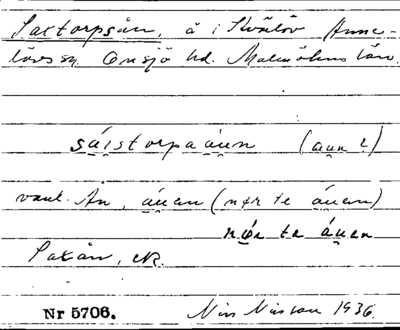 Saxtorpsån, å i Kvälöv Anne-
lövs sn. Onsjö hd. Malmöhus län.
sáistorpaáuen (auen 2)
vanl. Ån, áuan (nør te áuan)
nǿr te áuan
Saxån, ek.
Nr 5706. Nils Nilsson 1936.